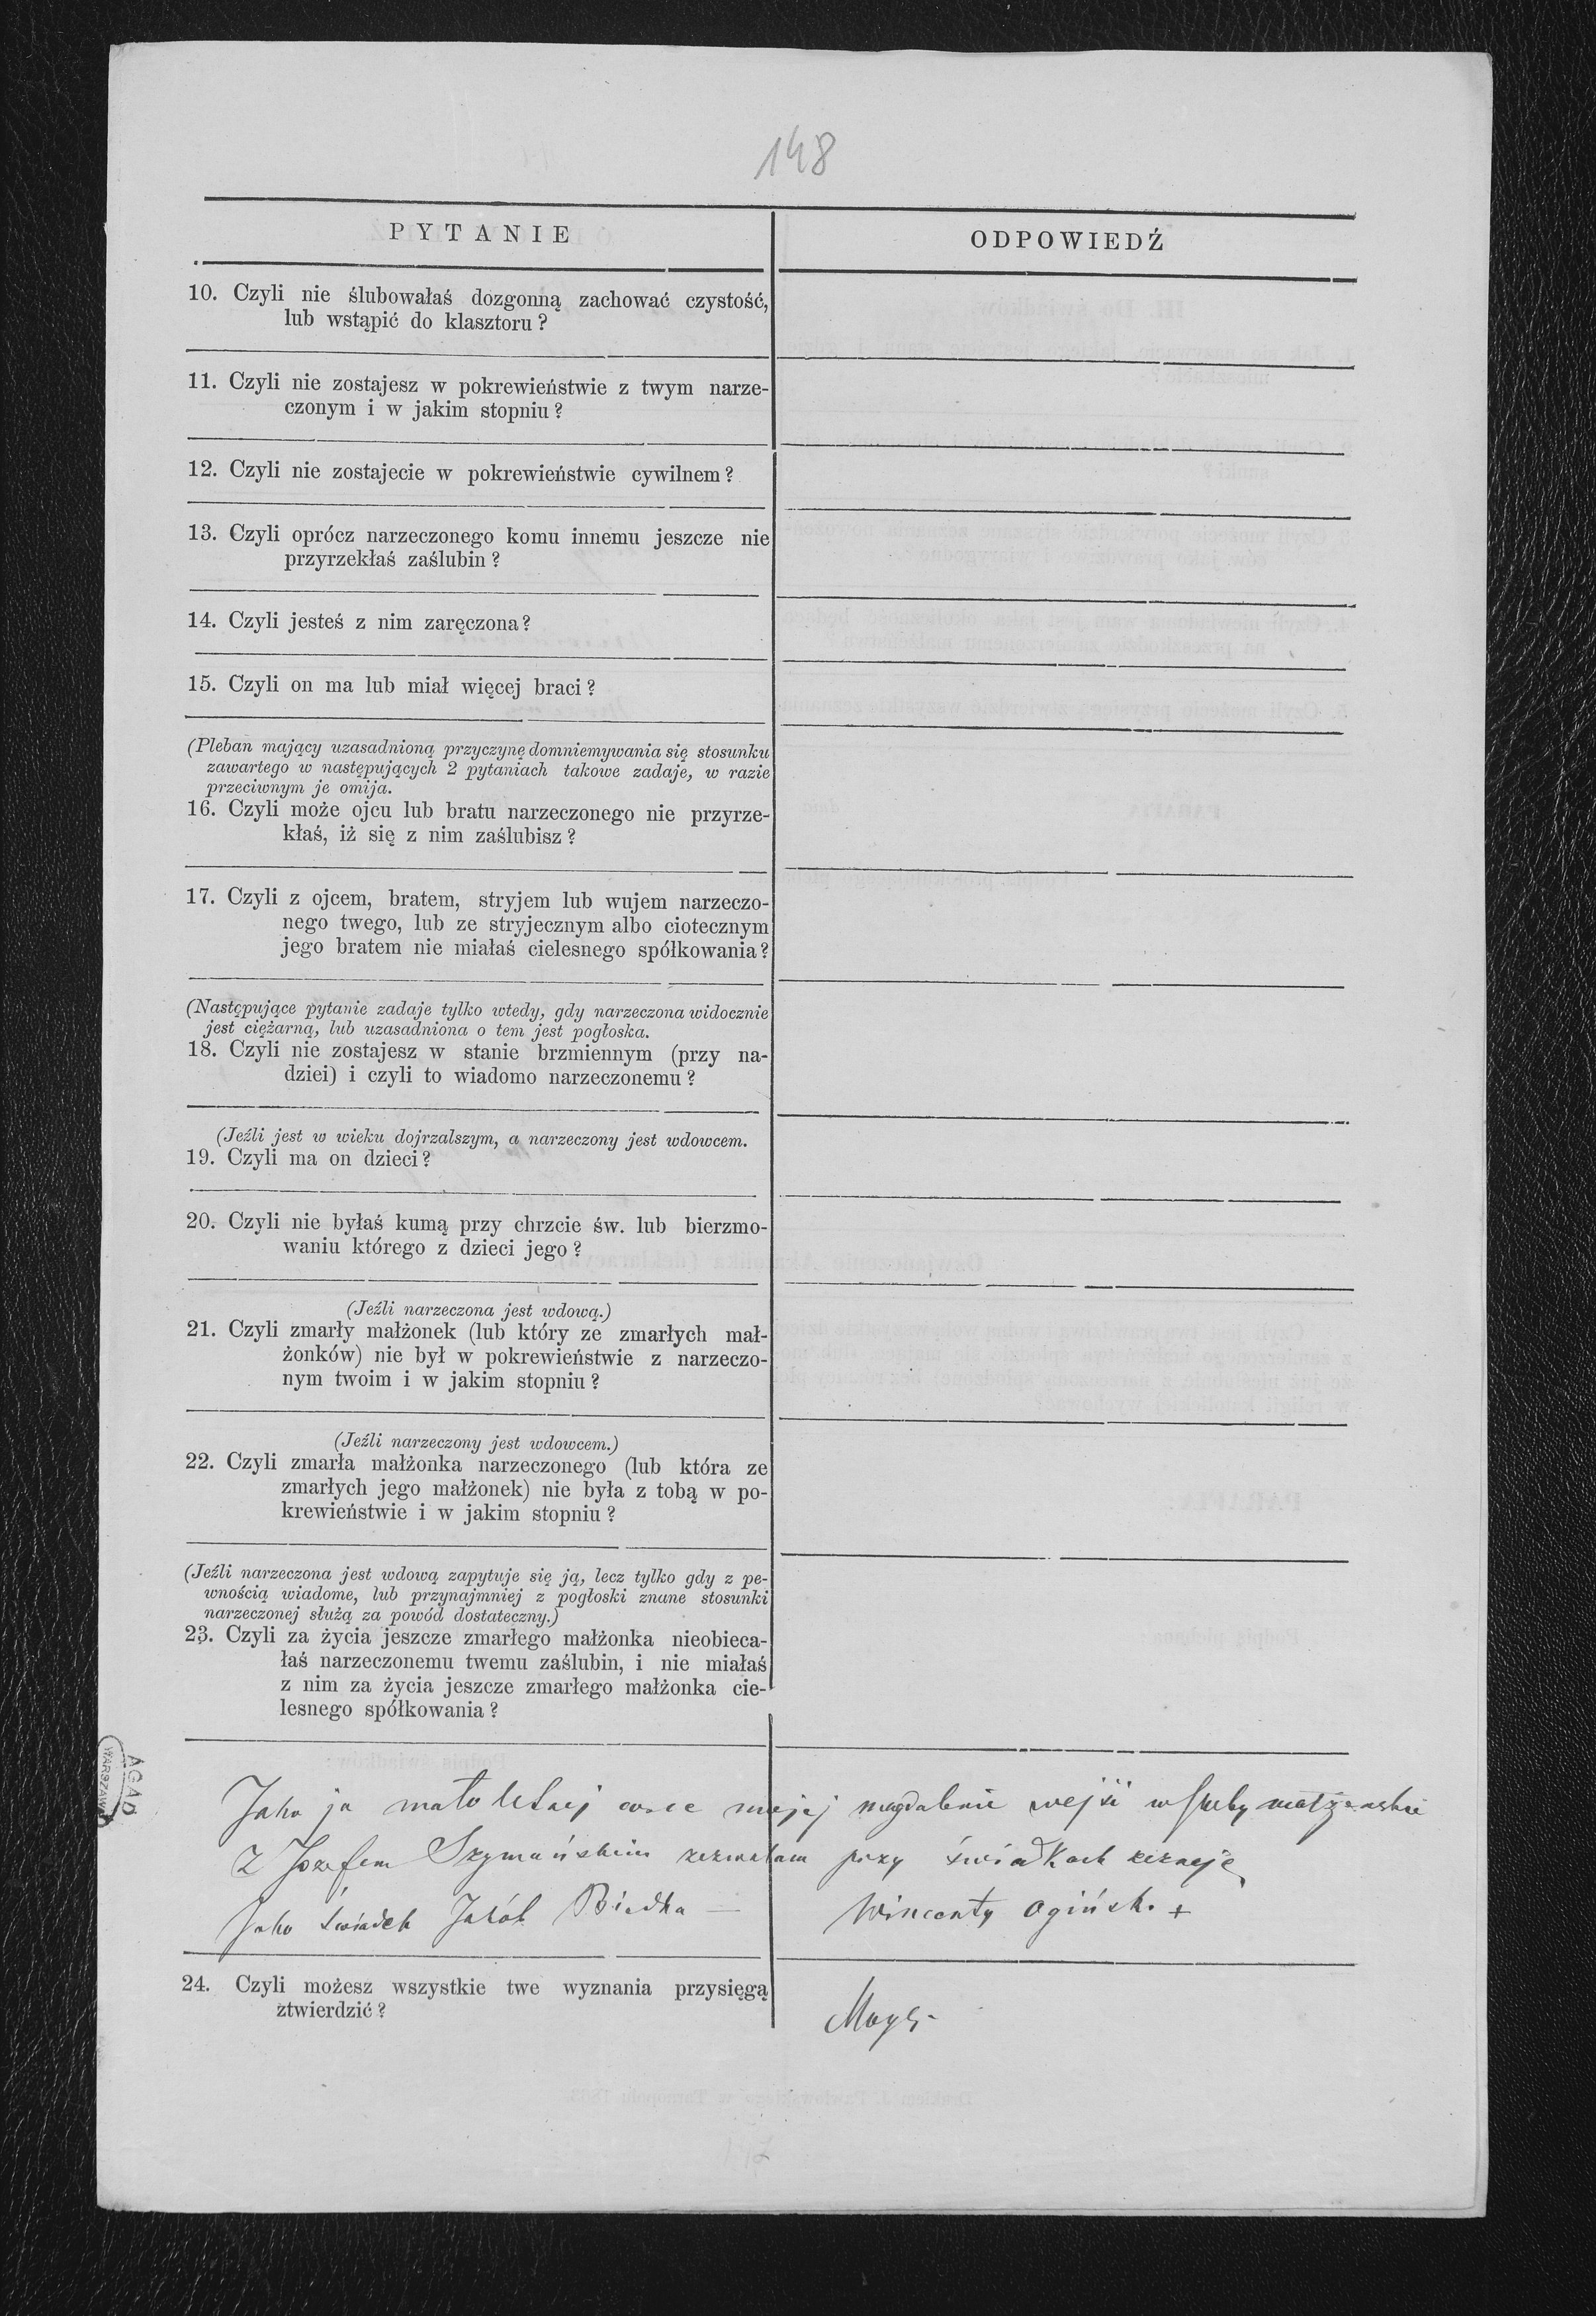 148
PYTANIE
ODPOWIEDŹ
10. Czyli nie ślubowałaś dozgonną zachować czystość,
lub wstąpić do klasztoru?
11. Czyli nie zostajesz w pokrewieństwie z twym narze-
czonym i w jakim stopniu?
12. Czyli nie zostajecie w pokrewieństwie cywilnem?
13. Czyli oprócz narzeczonego komu innemu jeszcze nie
przyrzekłaś zaślubin?
14. Czyli jesteś z nim zaręczona?
15. Czyli on ma lub miał więcej braci?
(Pleban mający uzasadnioną przyczynę domniemywania się stosunku
zawartego w następujących 2 pytaniach takowe zadaje, w razie
przeciwnym je omija.
16. Czyli może ojcu lub bratu narzeczonego nie przyrze-
kłaś, iż się z nim zaślubisz?
17. Czyli z ojcem, bratem, stryjem lub wujem narzeczo-
nego twego, lub ze stryjecznym albo ciotecznym
jego bratem nie miałaś cielesnego spółkowania?
(Następujące pytanie zadaje tylko wtedy, gdy narzeczona widocznie
jest ciężarną, lub uzasadniona o tem jest pogłoska.
18. Czyli nie zostajesz w stanie brzmiennym (przy na-
dziei) i czyli to wiadomo narzeczonemu?
(Jeźli jest w wieku dojrzalszym, a narzeczony jest wdowcem.
19. Czyli ma on dzieci?
20. Czyli nie byłaś kumą przy chrzcie św. lub bierzmo-
waniu którego z dzieci jego?
(Jeźli narzeczona jest wdową.)
21. Czyli zmarły małżonek (lub który ze zmarłych mał-
żonków) nie był w pokrewieństwie z narzeczo-
nym twoim i w jakim stopniu?
(Jeźli narzeczony jest wdowcem.)
22. Czyli zmarła małżonka narzeczonego (lub która ze
zmarłych jego małżonek) nie była z tobą w po-
krewieństwie i w jakim stopniu?
(Jeźli narzeczona jest wdową zapytuje się ją, lecz tylko gdy z pe-
wnością wiadome, lub przynajmniej z pogłoski znane stosunki
narzeczonej służą za powód dostateczny.)
23. Czyli za życia jeszcze zmarłego małżonka nieobieca-
łaś narzeczonemu twemu zaślubin, i nie miałaś
z nim za życia jeszcze zmarłego małżonka cie-
lesnego spółkowania?
AGAD
WARSZAWA
Jako ja mało letniej corce mojej magdalenie wejść w słuby małżenskie
z Jozefem Szymańskim przy świadkach zeznaję
Jako świadek Jakób Biedka —
Wincenty Ogińsk. +
24. Czyli możesz wszystkie twe wyznania przysięgą
ztwierdzić?
Mogę